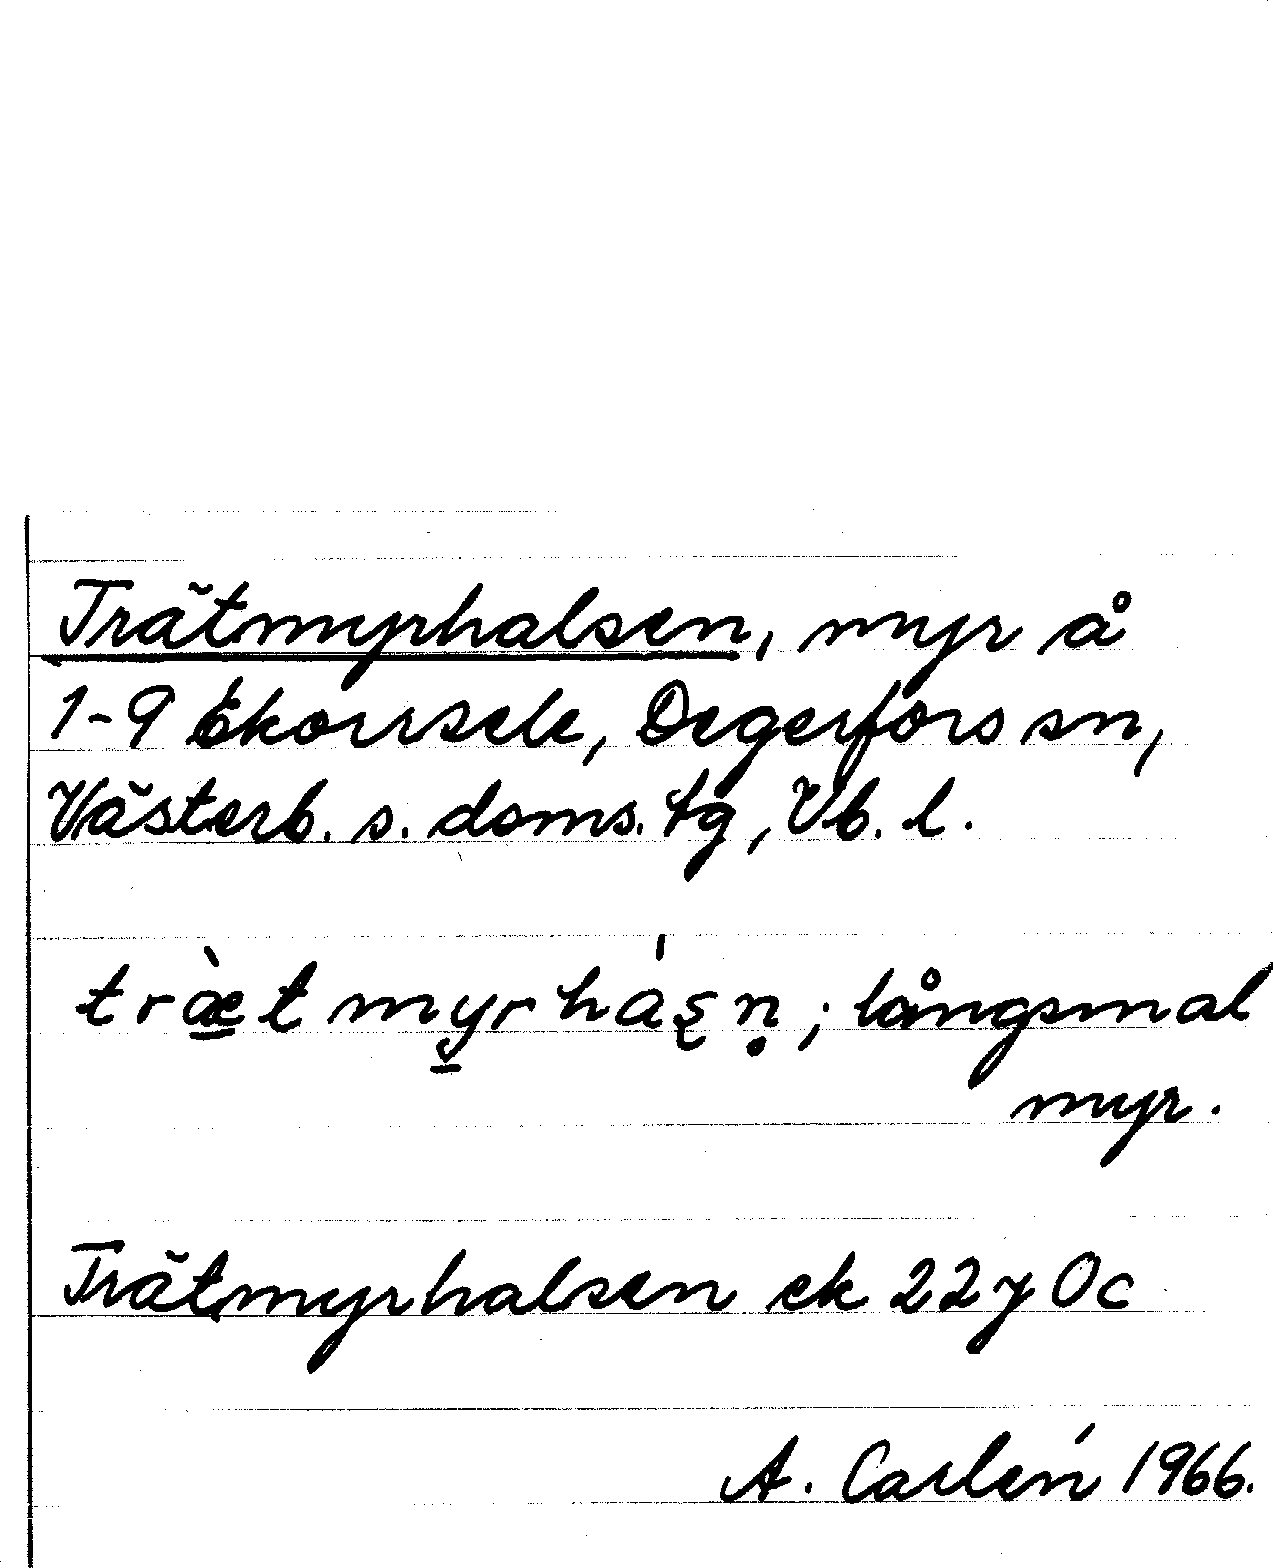 Trätmyrhalsen, myr å
1-9 Ekorrsele, Degerfors sn,
Västerb. s. doms. tg, Vb. l.
træ̀t myrháṣṇ; långsmal
myr.
Trätmyrhalsen ek 22 y 0c
A. Carlén 1966.